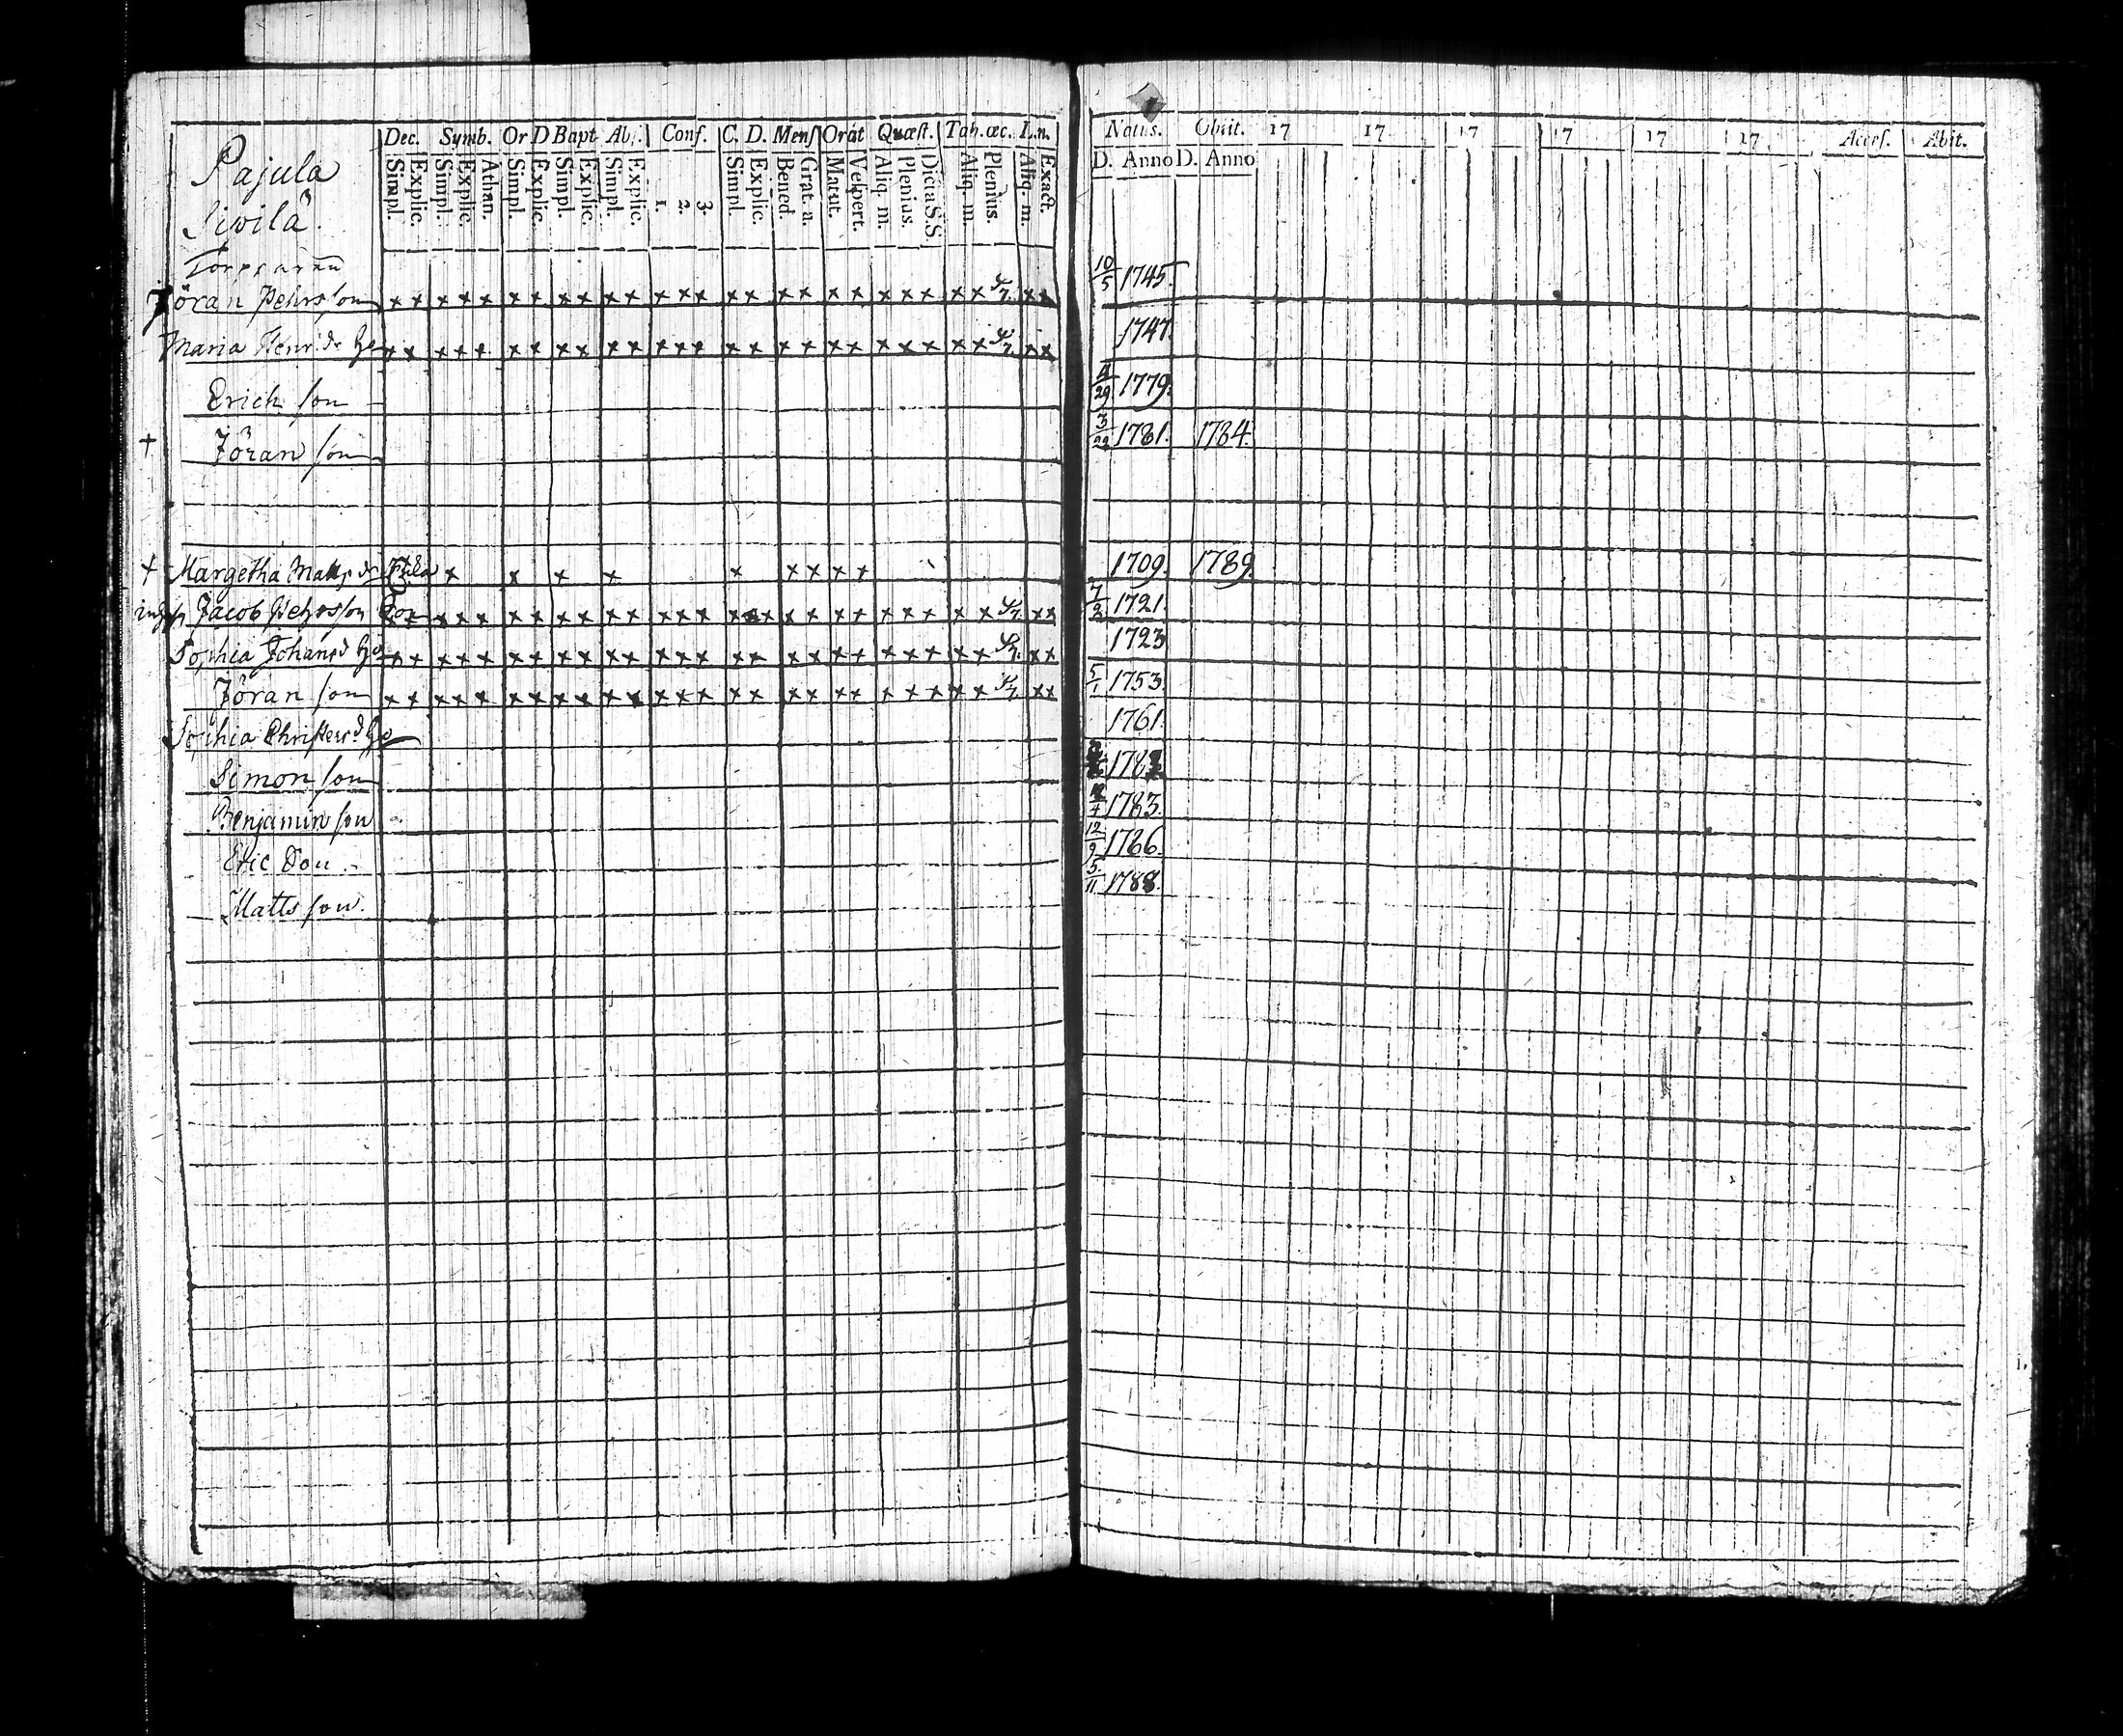 Dec. Symb. Or D Bapt Abs. Conf. C. D. Mens Orat Quæst. Tab. œc. L. n.
Simpl. Explic. Simpl. Explic. Athan. Simpl. Explic. Simpl. Explic. Simpl. Explic. 1. 2. 3. Simpl. Explic. Bened. Grat. a. Matut. Vespert. Aliq. m. Plenius. Dicta S. S. Aliq. m. Plenius. Aliq. m. Exact.
Pajula
Sivilä.
Torpparen
Jöran Pehrsson x x x x x x x x x x x x x x x x x x x x x x x x x x x
Maria Henr. dr x x x x x x x x x x x x x x x x x x x x x x x x x x x
Erich son
+ Jöran son
+ Margetha Matts dr Enka x x x x x x x x x
Jacob Pehrsson x x x x x x x x x x x x x x x x x x x x x x x x
Sophia Johans d x x x x x x x x x x x x x x x x x x x x x x x x x x
Jöran son x x x x x x x x x x x x x x x x x x x x x x x x x x
Sophia Christers d
Simon son
Benjamin son
Eric Son
Matts son.
Natus. Obiit. 17 17 17 17 17 17 Access. Abit.
D. Anno D. Anno
10/5 1745
1747
4/29 1779.
3/22 1781. 1784.
1709. 1789.
7/2 1721.
1723
5/1 1753.
1761.
178
1783.
12/9 1786.
5/11 1788.